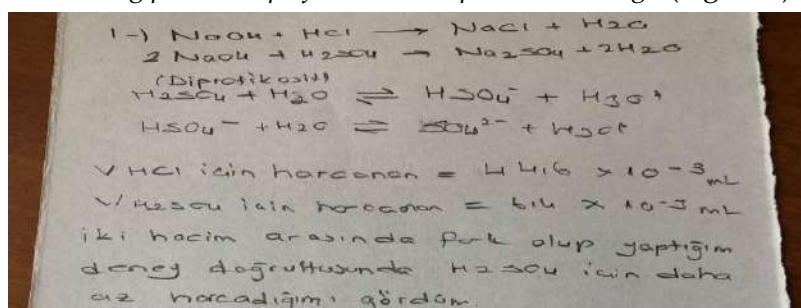 1-) NaOH + HCl → NaCl + H2O
2 NaOH + H2SO4 → Na2SO4 + 2H2O
(Diprotik asit)
H2SO4 + H2O ⇌ HSO4⁻ + H3O⁺
HSO4⁻ + H2O ⇌ SO4²⁻ + H3O⁺
V HCl için harcanan = 44,6 × 10⁻³ mL
V H2SO4 için harcanan = 6,4 × 10⁻³ mL
iki hacim arasında fark olup yaptığım
deney doğrultusunda H2SO4 için daha
az harcadığımı gördüm.